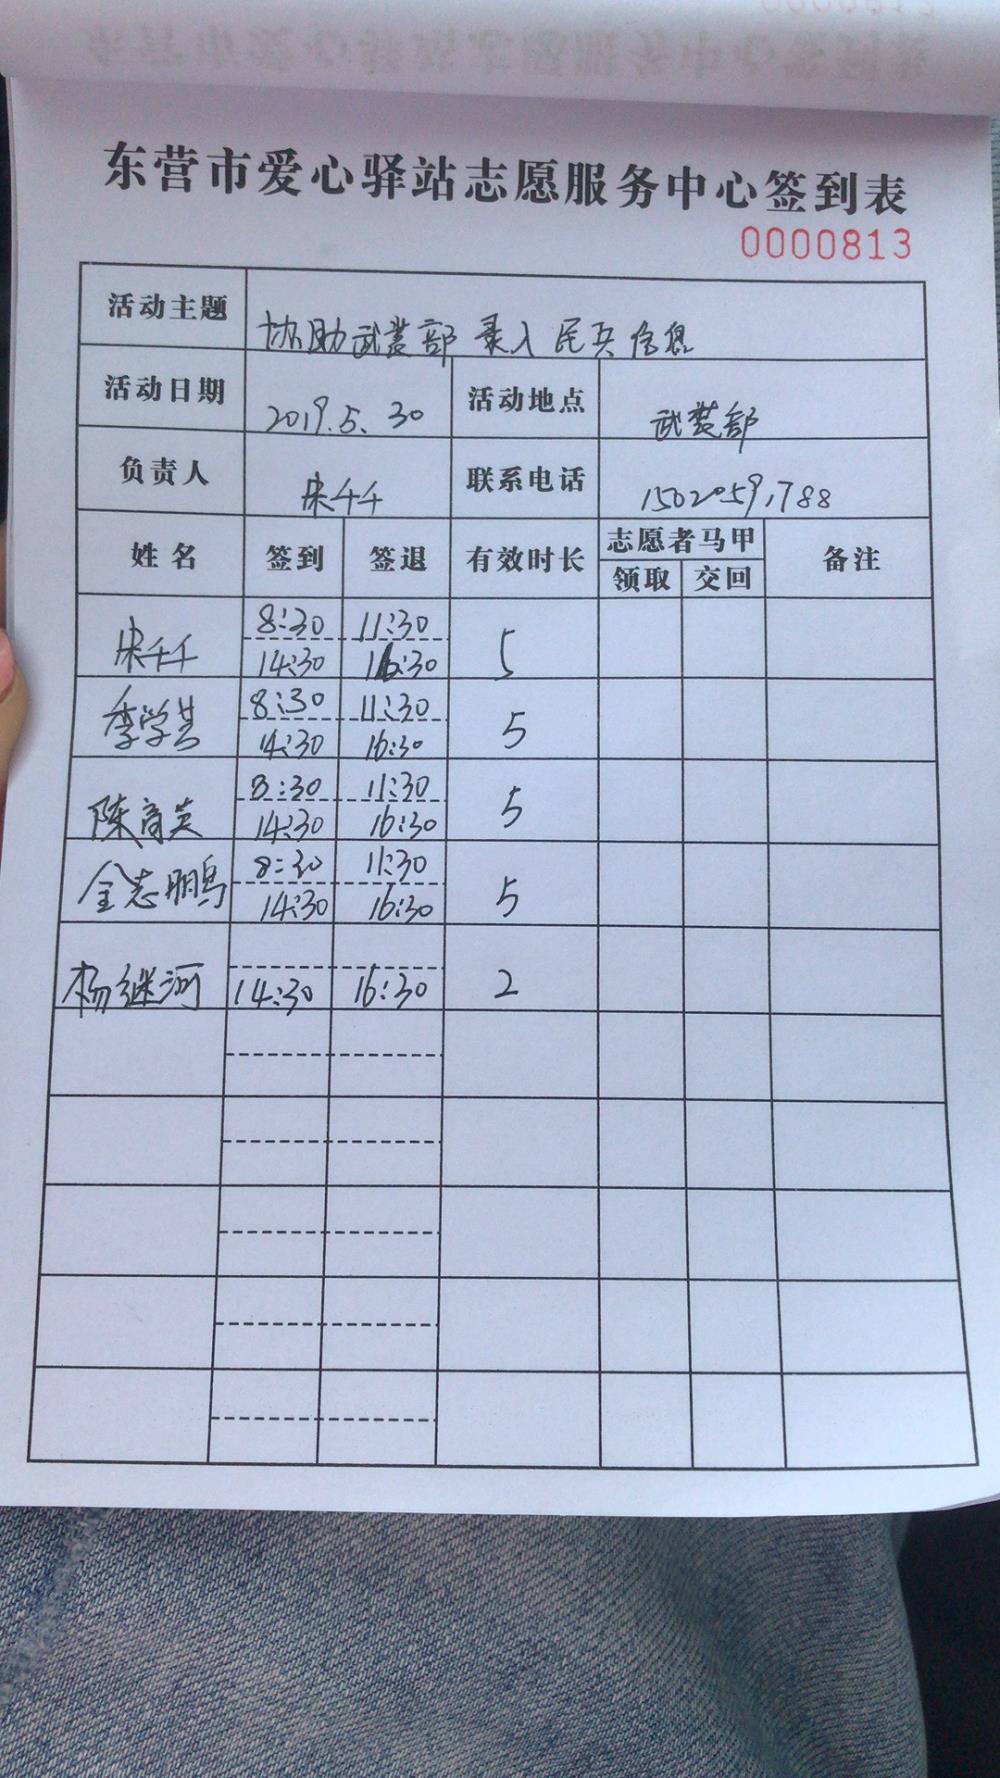 东营市爱心驿站志愿服务中心签到表
0000813
活动主题 协助武装部录入民兵信息
活动日期 2019.5.30 活动地点 武装部
负责人 宋千千 联系电话 15020591788
姓名 签到 签退 有效时长 志愿者马甲 备注
领取 交回
宋千千 8:30 11:30 5
14:30 16:30
季学其 8:30 11:30 5
14:30 16:30
陈育英 8:30 11:30 5
14:30 16:30
金志鹏 8:30 11:30 5
14:30 16:30
杨继河 14:30 16:30 2